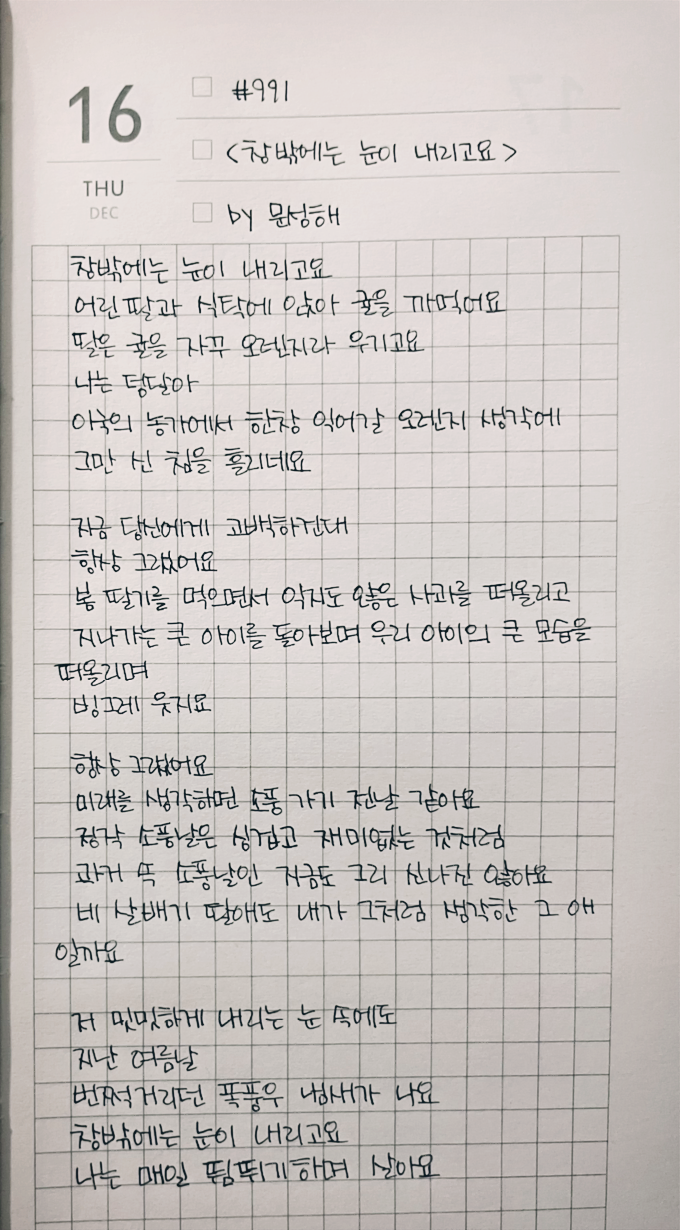 16
THU
DEC
#991
<창밖에는 눈이 내리고요>
by 문성해
창밖에는 눈이 내리고요
어린 딸과 식탁에 앉아 귤을 까먹어요
딸은 귤을 자꾸 오렌지라 우기고요
나는 덩달아
이국의 농가에서 한창 익어갈 오렌지 생각에
그만 신 침을 흘리네요
지금 당신에게 고백하건대
항상 그랬어요
봄 딸기를 먹으면서 익지도 않은 사과를 떠올리고
지나가는 큰 아이를 돌아보며 우리 아이의 큰 모습을
떠올리며
빙그레 웃지요
항상 그랬어요
미래를 생각하면 소풍 가기 전날 같아요
정작 소풍날은 싱겁고 재미없는 것처럼
과거 쪽 소풍날인 지금도 그리 신나진 않아요
네 살배기 딸애도 내가 그처럼 생각한 그 애
일까요
저 밋밋하게 내리는 눈 속에도
지난 여름날
번쩍거리던 폭풍우 냄새가 나요
창밖에는 눈이 내리고요
나는 매일 뜀뛰기하며 살아요